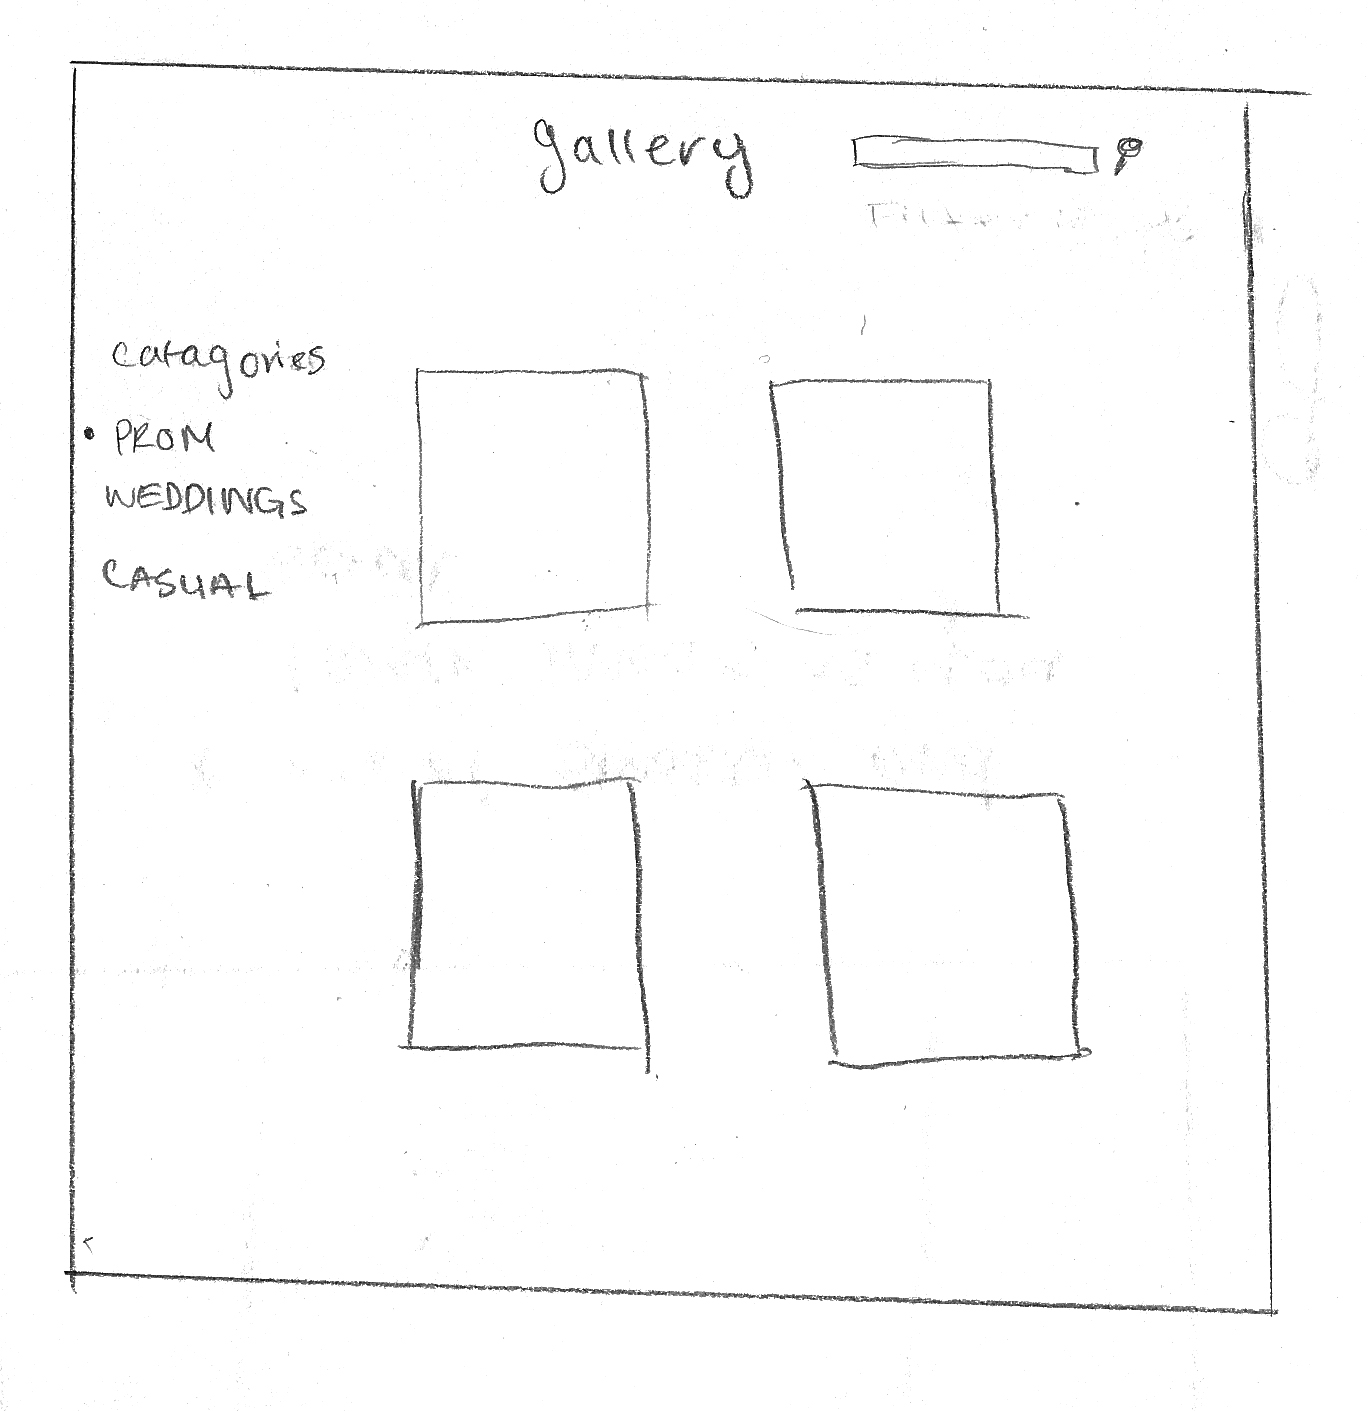 gallery
catagories
• PROM
WEDDINGS
CASUAL